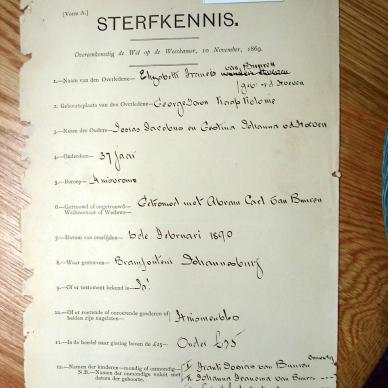 [Vorm A.]
STERFKENNIS.
Overeenkomstig de Wet op de Weeskamer, 10 November, 1869.
van Buuren
1.—Naam van den Overledene— Elizabeth Francis
geb v d Hoeven
2. Geboorteplaats van den Overledene— George Town Kaap Kolonie
3.—Namen der Ouders— Josias Jacobus en Johanna v d Hoeven
4.—Ouderdom— 37 jaar
5.—Beroep— Huisvrouw
6.—Getrouwd of ongetrouwd— Getrouwd met Abram Carl van Buuren
Weduwenaar of Weduwe—
7.—Datum van overlijden— 6de Februari 1890
8.—Waar gestorven— Bramfontein Johannesburg
9.—Of er testament bekend is— Ja
10.—Of er roerende of onroerende goederen of
beiden zijn nagelaten—
11.—Is de boedel naar gissing boven de £15— Onder
12.—Namen der kinderen—mondig of onmondig—
N.B.—Namen der onmondige voluit met
datum der geboorte.
van Buuren
Johanna